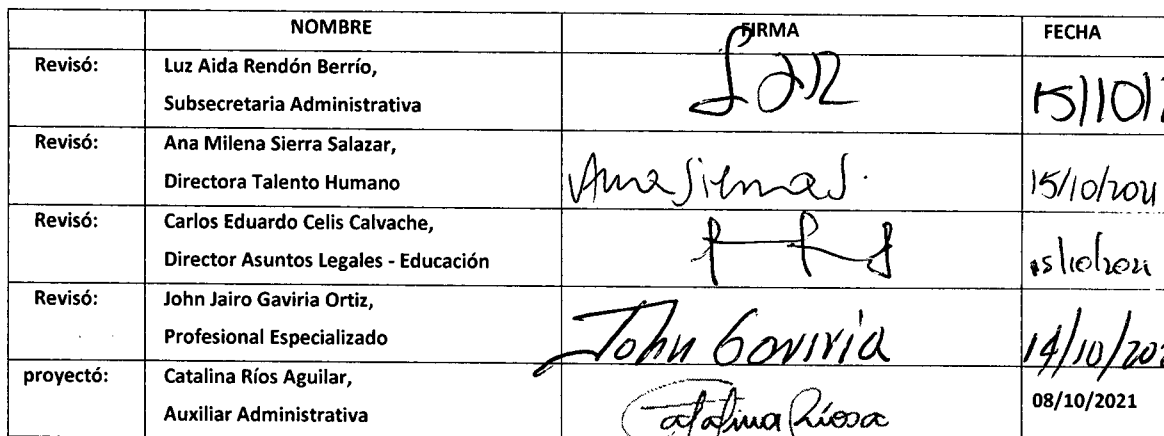 NOMBRE FIRMA FECHA
Revisó: Luz Aida Rendón Berrío,
Subsecretaria Administrativa
15/10/2
Revisó: Ana Milena Sierra Salazar,
Directora Talento Humano
Ana Sierra S. 15/10/2021
Revisó: Carlos Eduardo Celis Calvache,
Director Asuntos Legales - Educación
15/10/2021
Revisó: John Jairo Gaviria Ortiz,
Profesional Especializado
John Gaviria 14/10/202
proyectó: Catalina Ríos Aguilar,
Auxiliar Administrativa
Catalina Ríos a 08/10/2021